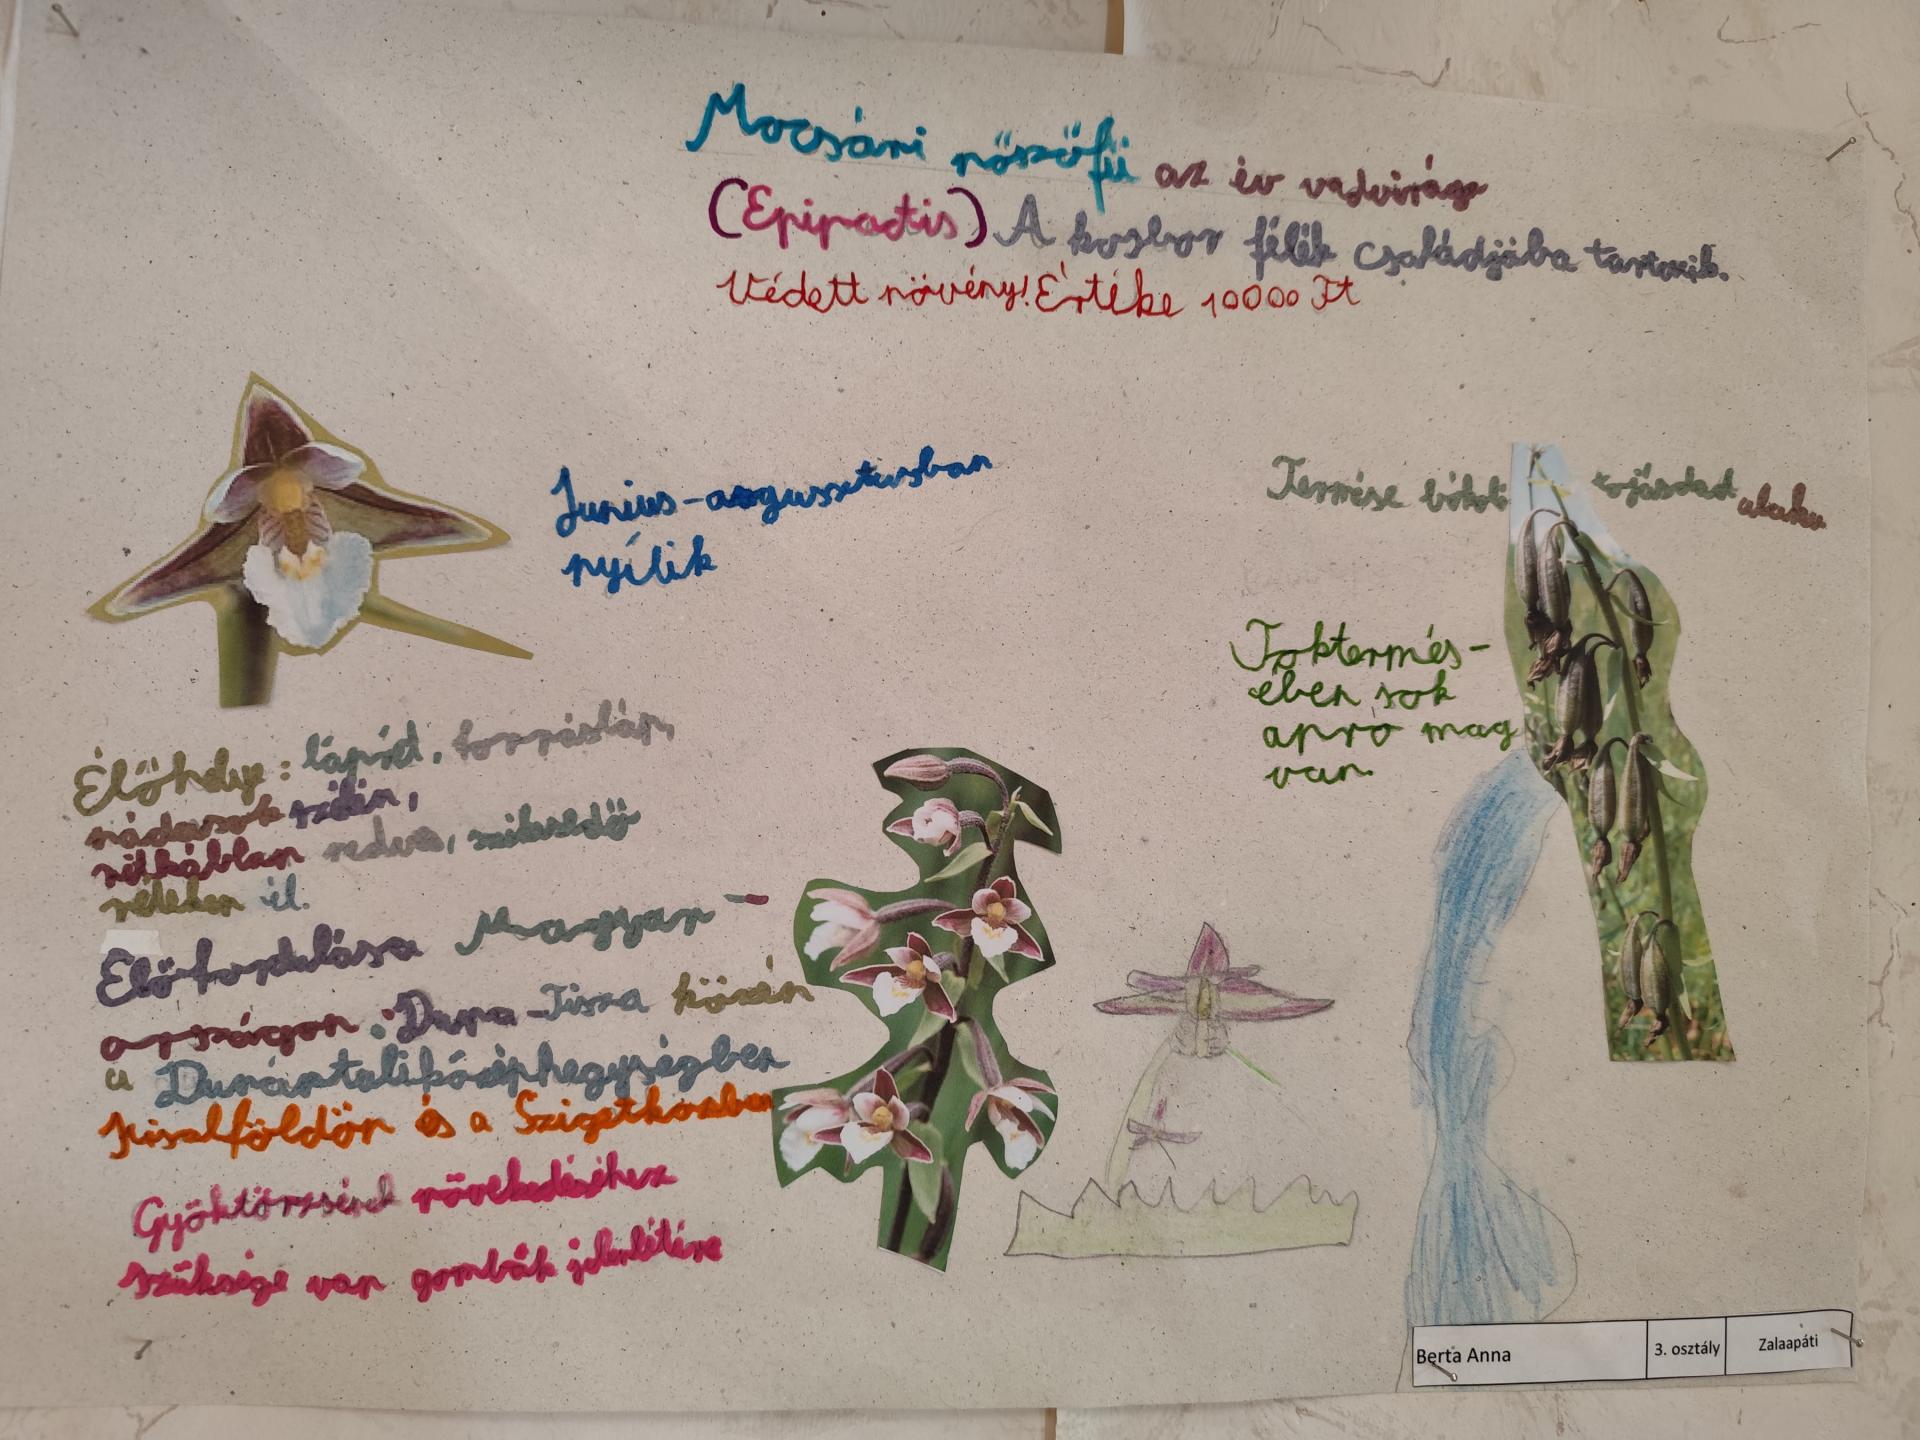 Mocsári nőszőfű az év vadvirága
(Epipactis) A kosbor félék családjába tartozik.
Védett növény! Értéke 10000 Ft
Junius-augusztusban
nyílik
Termése bókoló tojásdad alaku
Toktermés-
ében sok
apró mag
van.
Élőhelye: láprét, forrásláp,
nádasok szélén,
nedves,
réteken él.
Előfordulása Magyar-
országon: Duna-Tisza közén
a Dunántuliközéphegységben
Kisalföldön és a Szigetközben
Gyöktörzsének növekedéséhez
szüksége van gombák jelenlétére
Berta Anna 3. osztály Zalaapáti